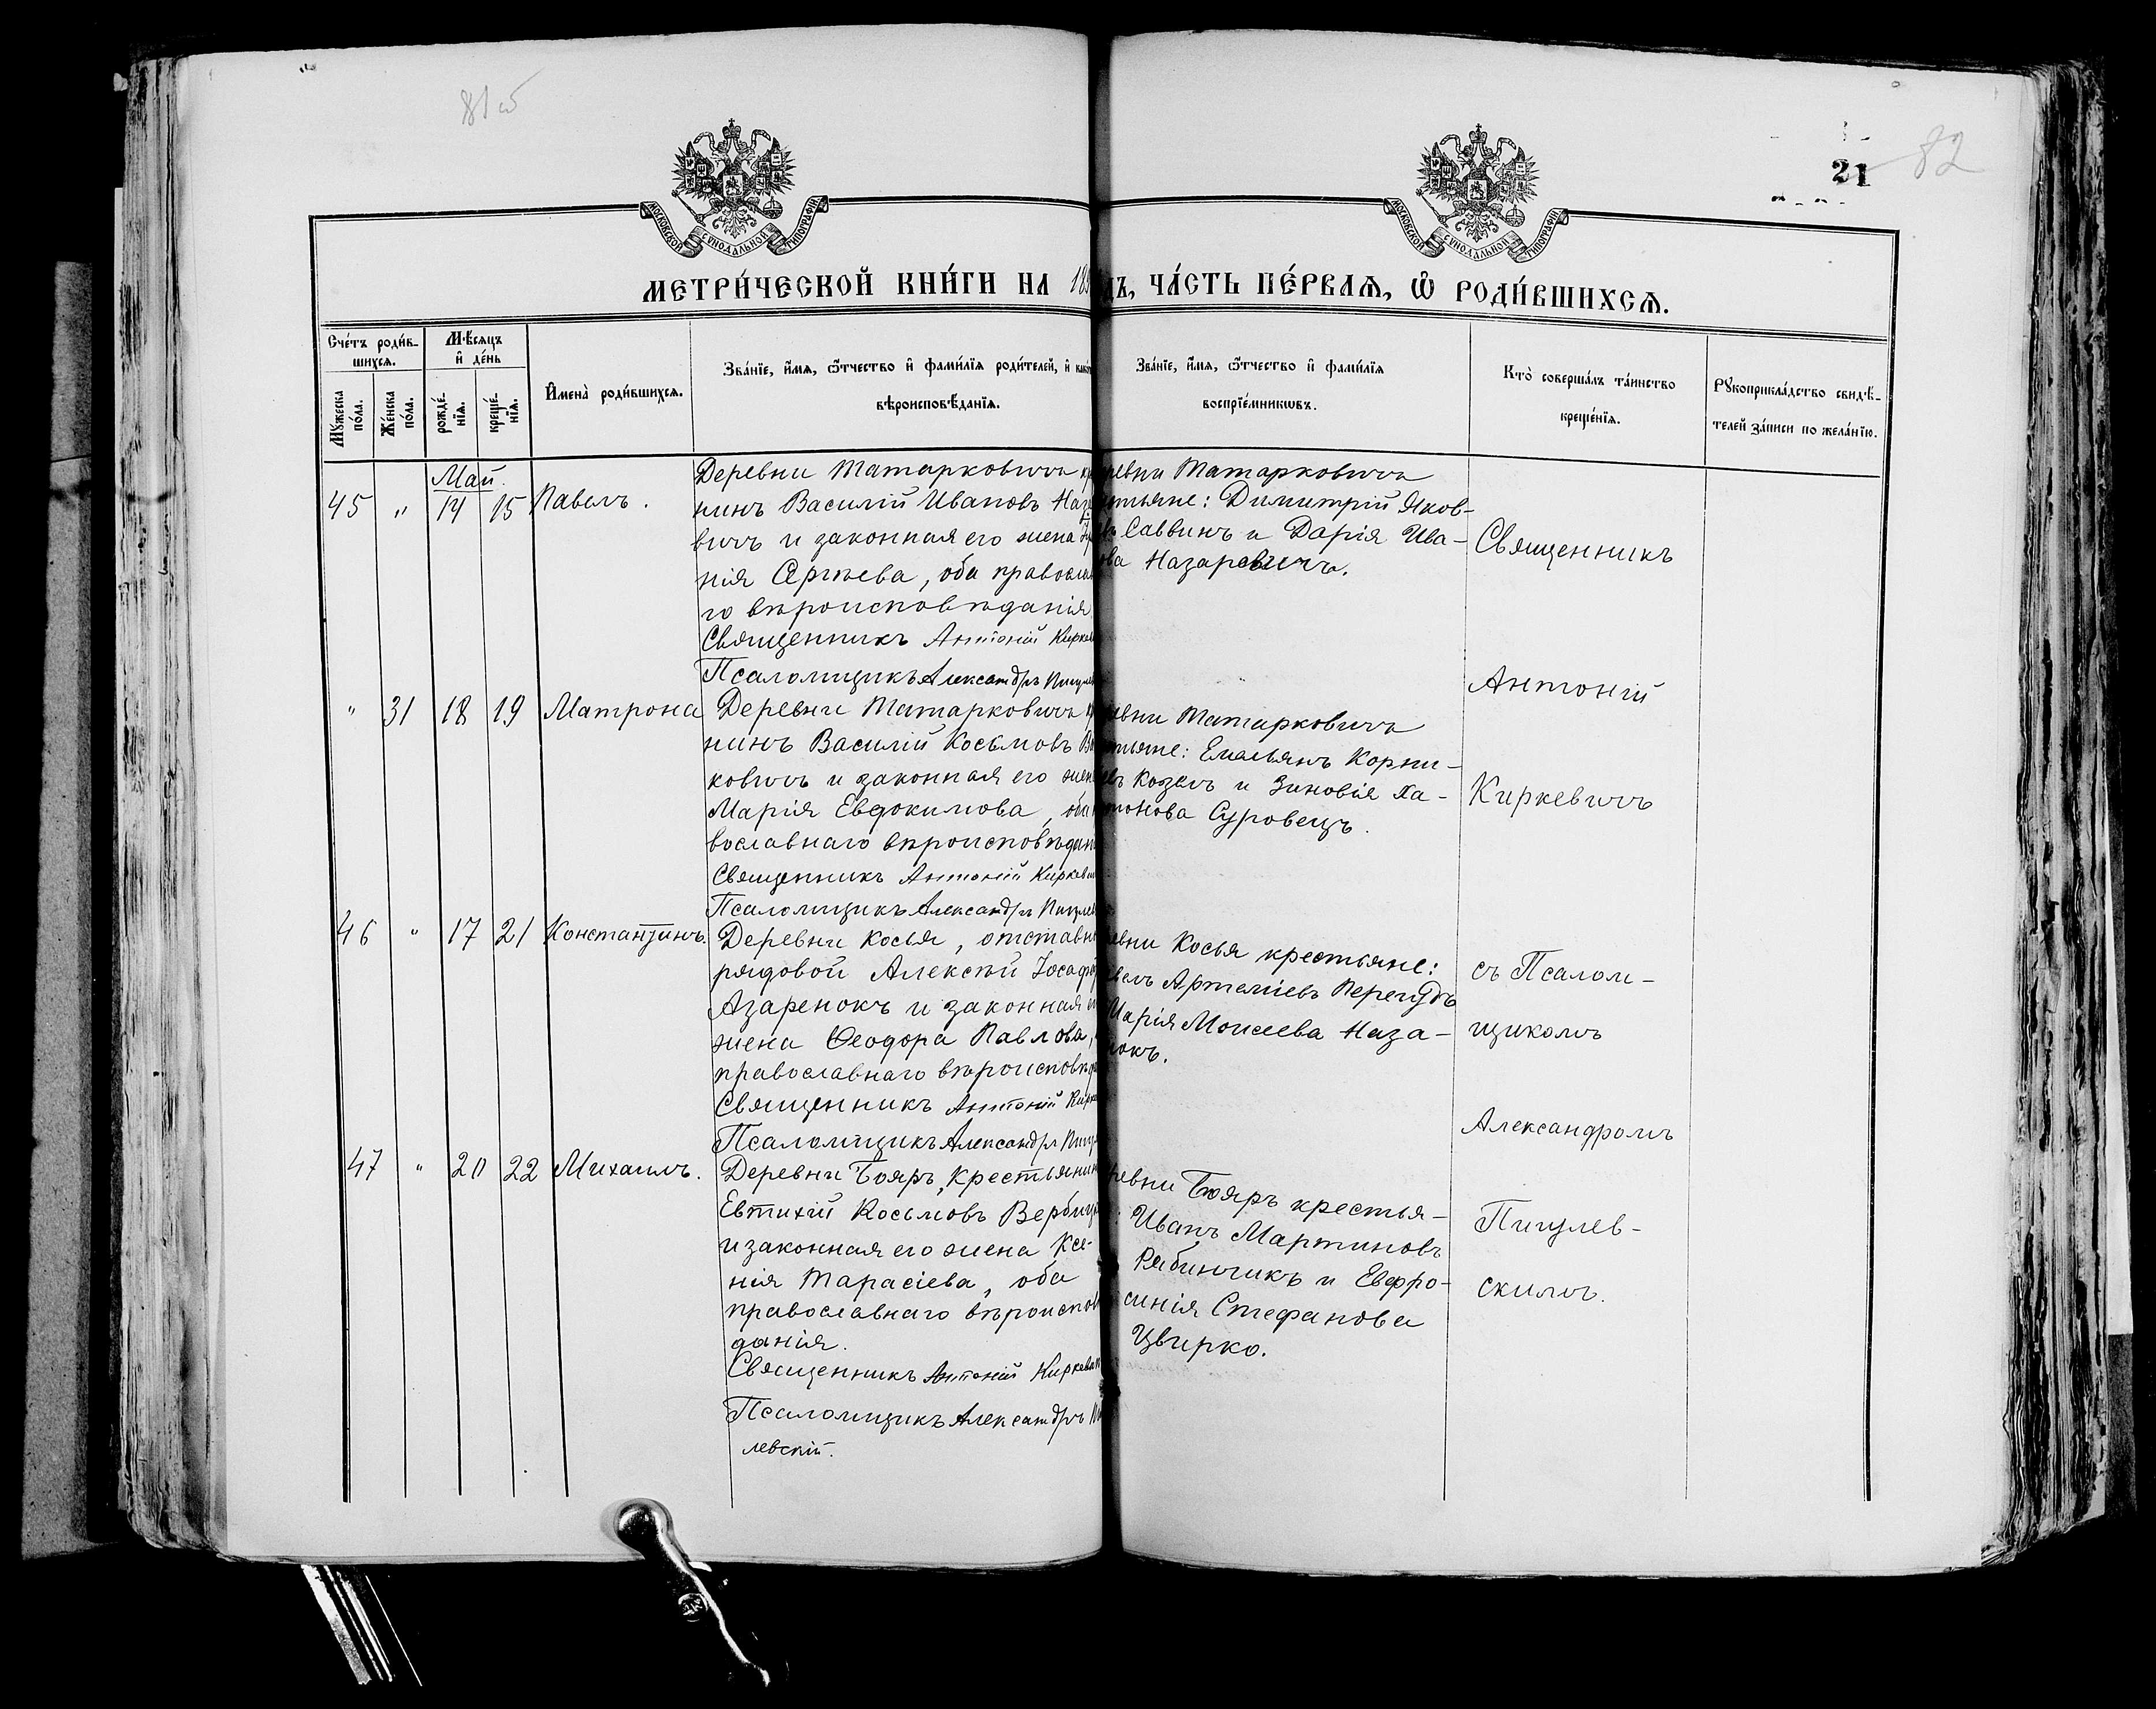 81 об
82
21
МОСКОВСКОЙ СѴНОДАЛЬНОЙ ТИПОГРАФІИ
МОСКОВСКОЙ СѴНОДАЛЬНОЙ ТИПОГРАФІИ
МЕТРИ́ЧЕСКОЙ КНИ́ГИ НА 18
ДЪ, ЧА́СТЬ ПЕ́РВАѦ, Ѡ҆ РОДИ́ВШИХСѦ.
Сче́тъ роди́в-
шихсѧ.
Мѣ́сѧцъ
и҆ де́нь
Мꙋ́жеска
по́ла.
Же́нска
по́ла.
рожде́-
нїѧ.
креще́-
нїѧ.
И҆мена̀ роди́вшихсѧ.
Зва́нїе, и҆́мѧ, ѻ҆́тчество и҆ фами́лїѧ роди́телей, и҆
вѣроисповѣ́данїѧ.
Зва́нїе, и҆́мѧ, ѻ҆́тчество и҆ фами́лїѧ
воспрїе́мникѡвъ.
Кто̀ соверша́лъ та́инство
креще́нїѧ.
Рꙋкоприкла́дство свидѣ́-
телей за́писи по жела́нїю.
Май.
45 " 14 15 Павелъ.
Деревни Татарковичъ кр
нинъ Василій Ивановъ Наза
вичъ и законная его жена
нія Сергѣева, оба православ
го вѣроисповѣданія
Священникъ Антоній Киркев
Псаломщикъ Александръ Пигулев
ревни Татарковичъ
стьяне: Димитрій Яков-
въ Саввинъ и Дарія Ива-
ова Назаревичъ.
" 31 18 19 Матрона
Деревни Татарковичъ кр
нинъ Василій Косьмовъ
ковичъ и законная его жен
Марія Евдокимова, оба
вославнаго вѣроисповѣдан
Священникъ Антоній Киркевич
Псаломщикъ Александръ Пигулев
ревни Татарковичъ
стьяне: Емельянъ Корни-
евъ Козелъ и Зиновія Ха-
ритонова Суровецъ.
46 " 17 21 Константинъ.
Деревни Косья, отставн
рядовой Алексѣй Іосаф
Азаренокъ и законная е
жена Ѳеодора Павлова,
православнаго вѣроисповѣд
Священникъ Антоній Кирк
Псаломщикъ Александръ Пигу
ревни Косья крестьяне:
велъ Артеміевъ Перегудъ
Марія Моисеева Наза-
нокъ.
47 " 20 22 Михаилъ.
Деревни Бояръ, крестьянин
Евтихій Косьмовъ Вербиц
и законная его жена Ксе-
нія Тарасіева, оба
православнаго вѣроиспов
данія.
Священникъ Антоній Киркевич
Псаломщикъ Александръ Пи
левскій.
ревни Бояръ крестья-
Иванъ Мартиновъ
Рябинчикъ и Евфро-
синія Стефанова
Цвирко.
Священникъ
Антоній
Киркевичъ
съ Псалом-
щикомъ
Александромъ
Пигулев-
скимъ.